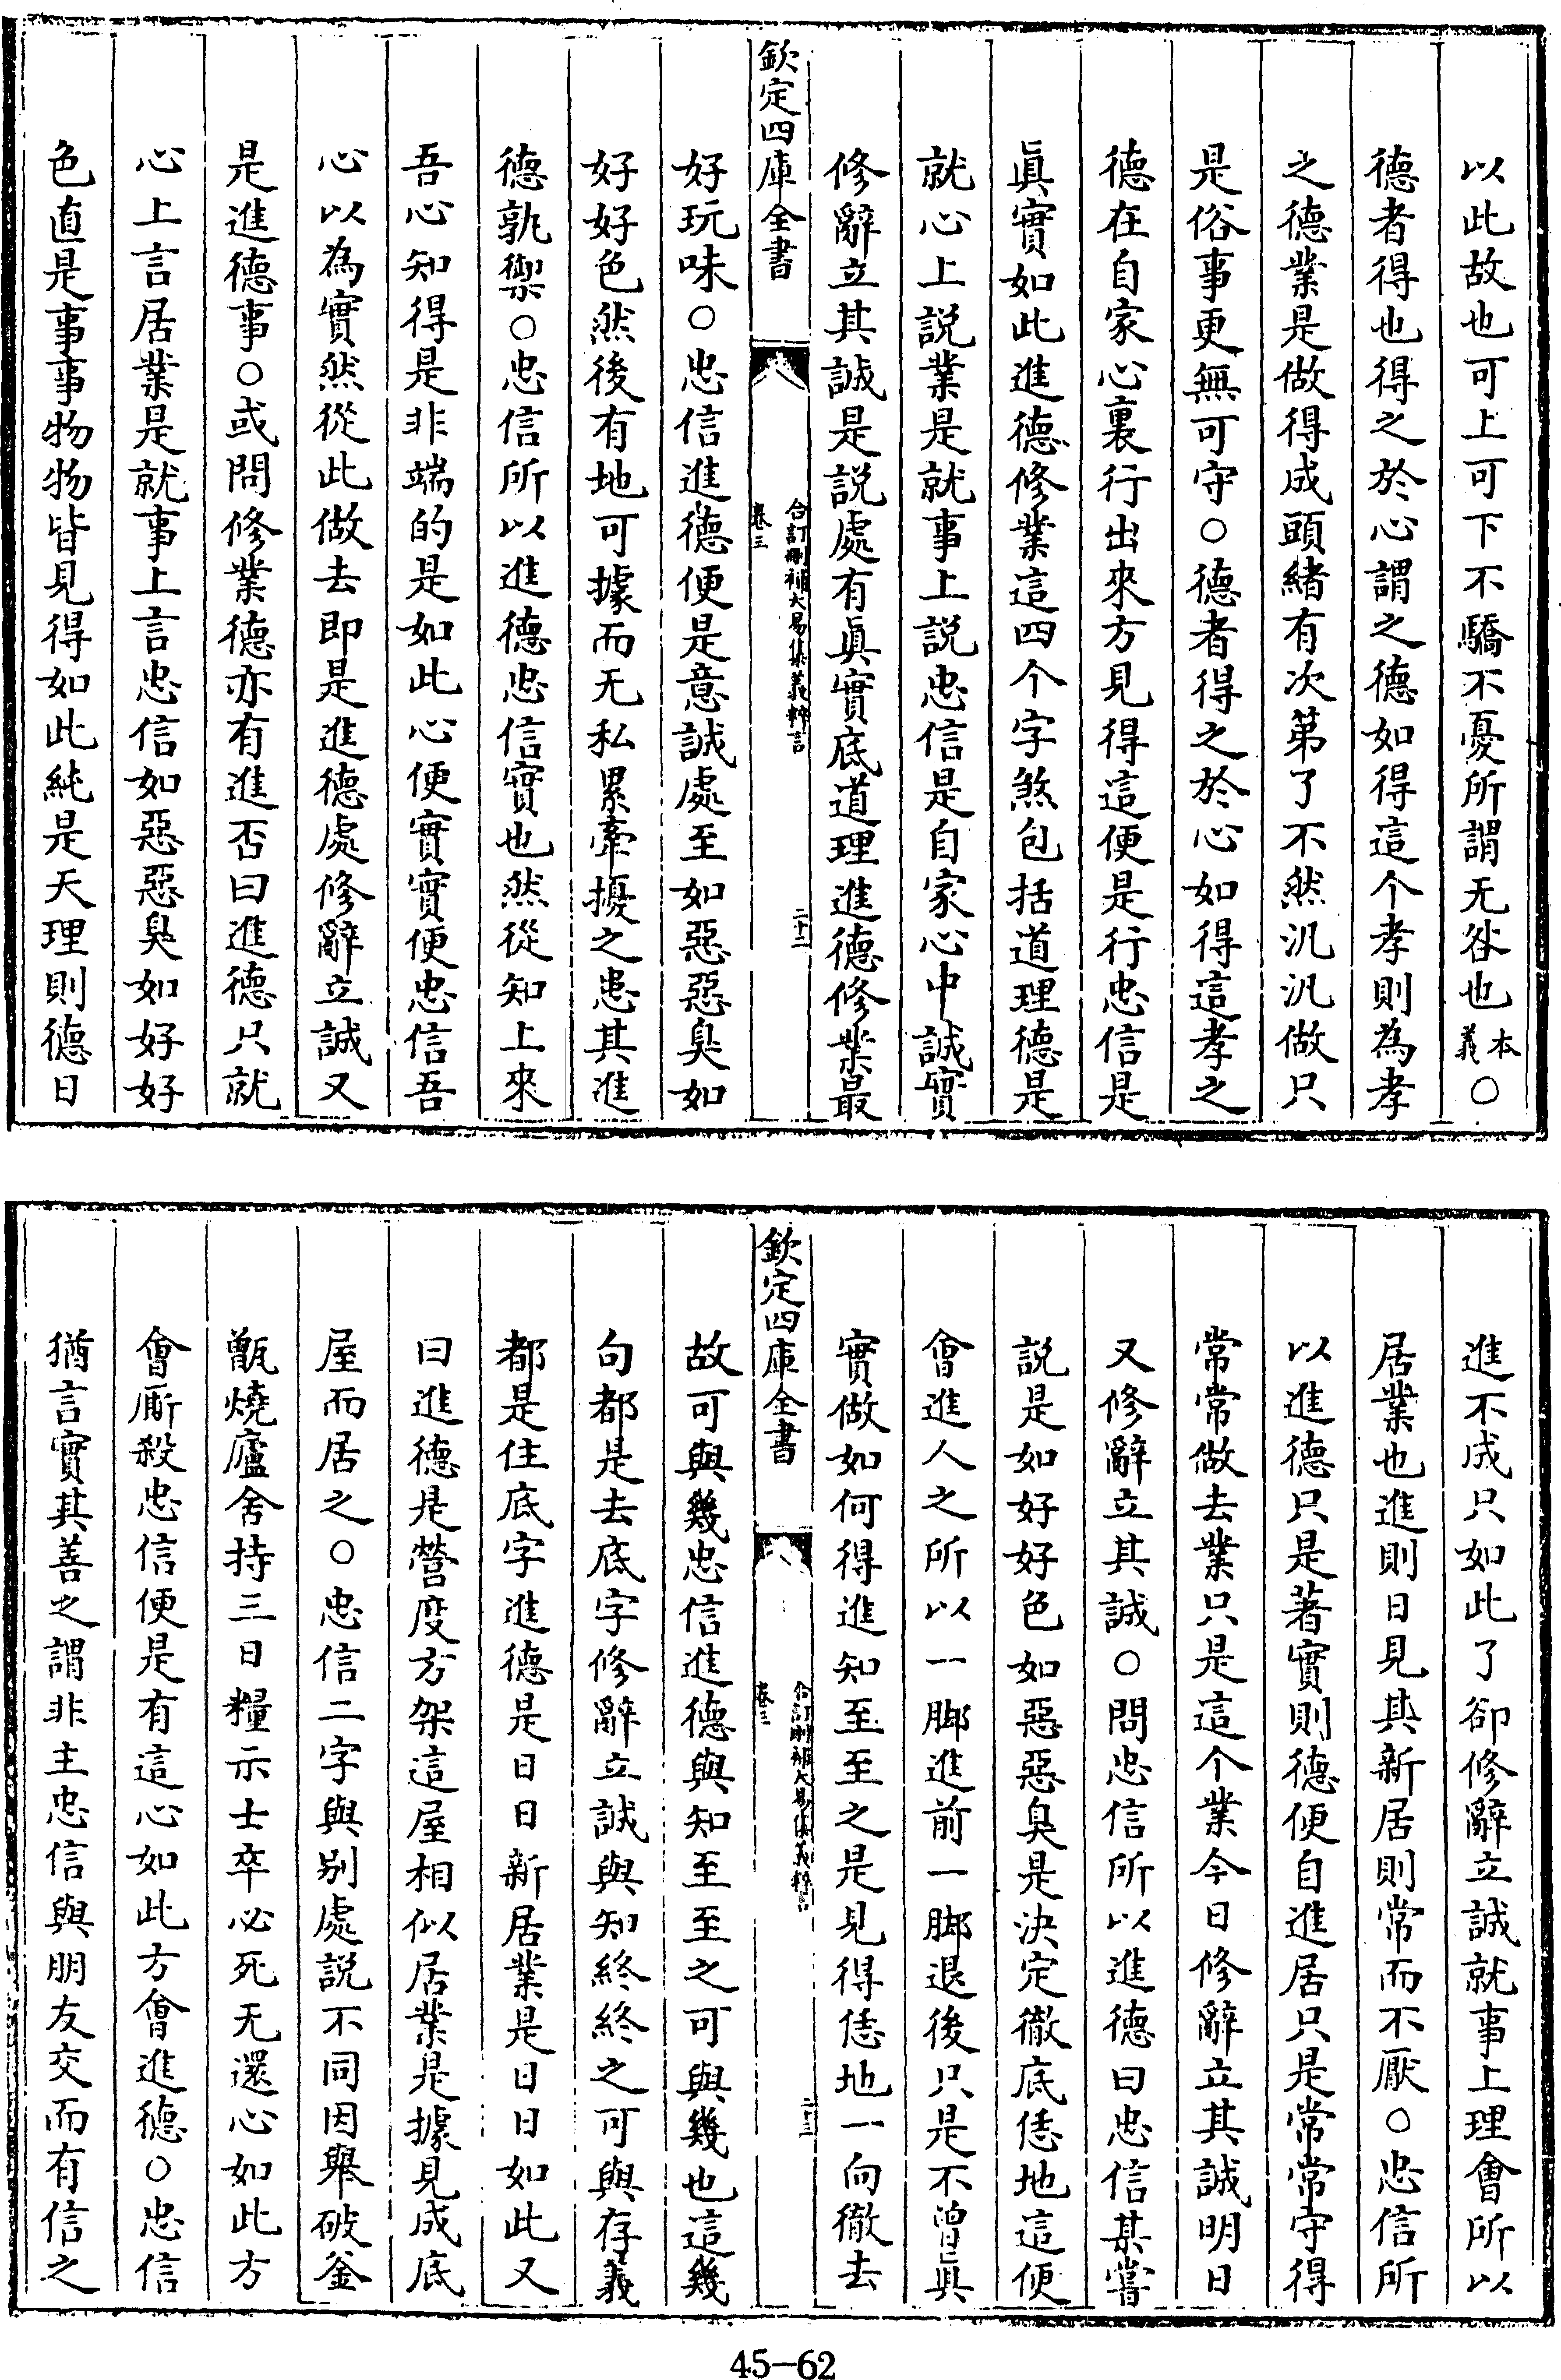 以此故也可上可下不驕不憂所謂无咎也本義○
德者得也得之於心謂之德如得這个孝則為孝
之德業是做得成頭緒有次第了不然汎汎做只
是俗事更無可守○德者得之於心如得這孝之
德在自家心裏行出來方見得這便是行忠信是
眞實如此進德修業這四个字煞包括道理德是
就心上説業是就事上説忠信是自家心中誠實
修辭立其誠是説處有眞實底道理進德修業最
欽定四庫全書
合訂刪補大易集義粹言
卷三
二十二
好玩味○忠信進德便是意誠處至如惡惡臭如
好好色然後有地可據而无私累牽擾之患其進
德孰禦○忠信所以進德忠信實也然從知上來
吾心知得是非端的是如此心便實實便忠信吾
心以為實然從此做去即是進德處修辭立誠又
是進德事○或問修業德亦有進否曰進德只就
心上言居業是就事上言忠信如惡惡臭如好好
色直是事事物物皆見得如此純是天理則德日
進不成只如此了卻修辭立誠就事上理會所以
居業也進則日見其新居則常而不厭○忠信所
以進德只是著實則德便自進居只是常常守得
常常做去業只是這个業今日修辭立其誠明日
又修辭立其誠○問忠信所以進德曰忠信某嘗
説是如好好色如惡惡臭是決定徹底恁地這便
會進人之所以一脚進前一脚退後只是不曾眞
實做如何得進知至至之是見得恁地一向徹去
欽定四庫全書
合訂刪補大易集義粹言
卷三
二十三
故可與幾忠信進德與知至至之可與幾也這幾
句都是去底字修辭立誠與知終終之可與存義
都是住底字進德是日日新居業是日日如此又
曰進德是營度方架這屋相似居業是據見成底
屋而居之○忠信二字與别處説不同因舉破釜
甑燒廬舍持三日糧示士卒必死无還心如此方
會厮殺忠信便是有這心如此方會進德○忠信
猶言實其善之謂非主忠信與朋友交而有信之
45-62